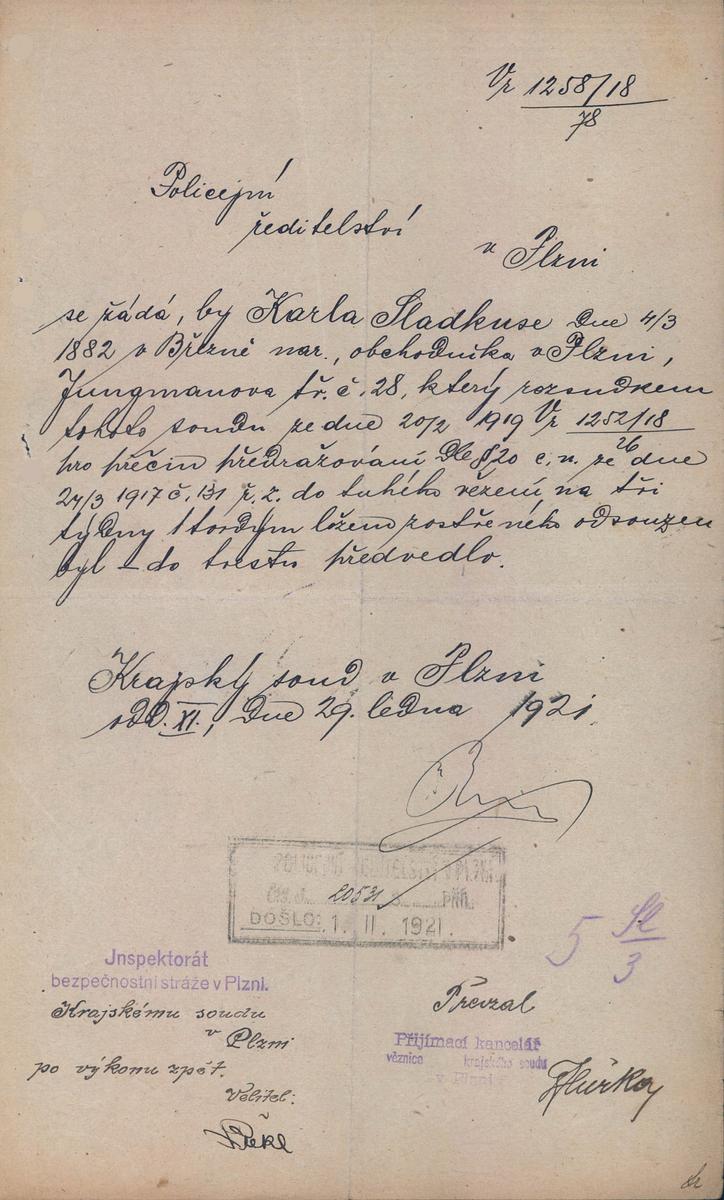 Vr 1258/18
78
Policejní
ředitelství
v Plzni
se žádá, by Karla Sladkuse dne 4/3
1882 v Březně nar., obchodníka v Plzni,
Jungmanova tř. č. 28, který rozsudkem
tohoto soudu ze dne 20/2 1919 Vr 1252/18
26
pro přečin předražování dle § 20 c. n. ze dne
24/3 1917 č. 131 ř. z. do tuhého vězení na tři
týdny 1 tvrdým ložem postřeného odsouzen
byl – do trestu předvedlo.
Krajský soud v Plzni
odd. XI., dne 29. ledna 1921.
POLICEJNÍ ŘEDITELSTVÍ V PLZNI
Čís. j. 20531 PŘÍL.
DOŠLO: 1. II. 1921.
5 Sl
3
Jnspektorát
bezpečnostní stráže v Plzni.
Krajskému soudu
v Plzni
po výkonu zpět.
Velitel:
Převzal
Přijímací kancelář
věznice krajského soudu
v Plzni